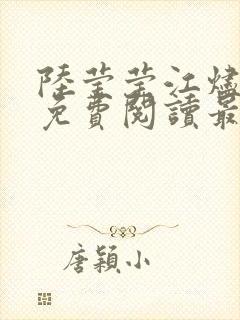 陸瑩瑩江燼
免費閱讀最
唐穎小